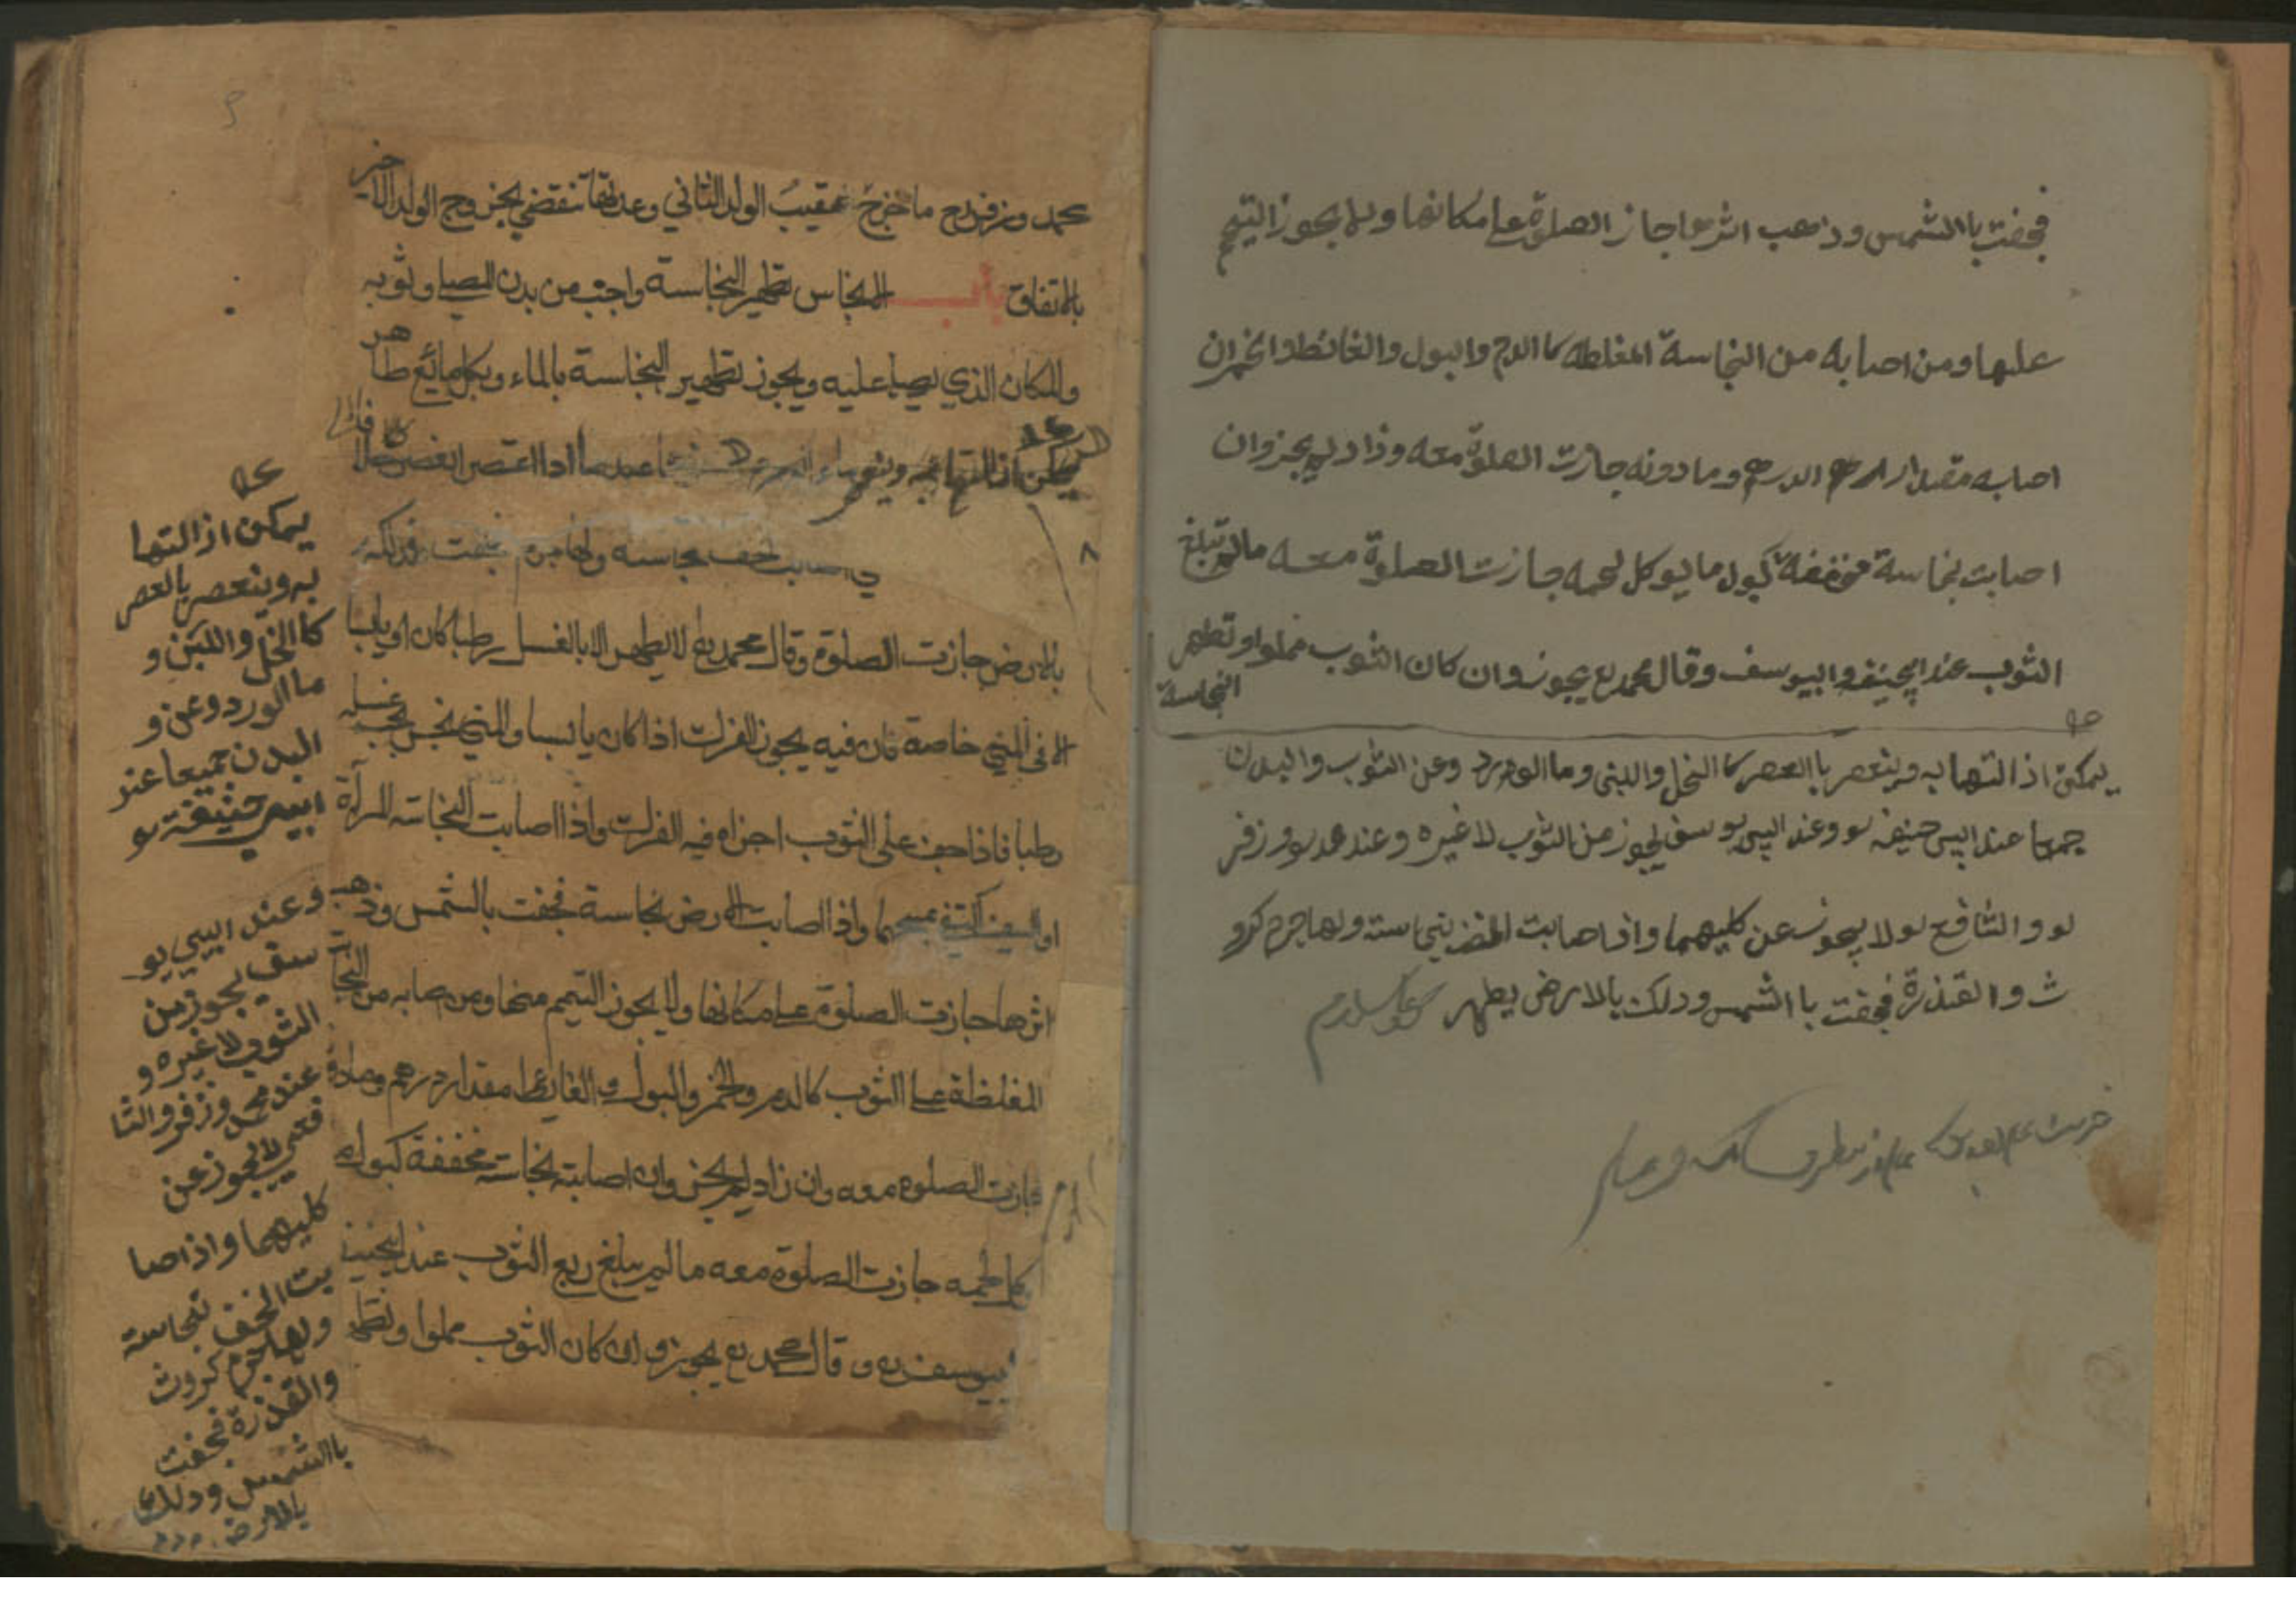 فجفت باالشمس وذهب اثرها جاز الصلوة على مكانها ولا يجوز التيمم
عليها ومن اصابه من النجاسة المغلظه كاالدم والبول والغائط والخمران
اصابه مقدار الدرهم وما دونه جازت الصلوة معه وذا د لم يجز وان
اصابت نجاسة مخففة كبول ما يوكل لحمه جازت الصلوة معه مالم تبلغ
الثوب عند ابيحنيفه وابيوسف وقال محمد رع يجوز وان كان الثوب مملوا وتطهير
النجاسة
يمكن اذالتها به وينعصر باالعصر كا الخل والبنى وما الورد وعن الثوب والبدن
جميعا عند ابيى حنيفه لو وعند ابيى يوسف يجوز من الثوب لا غيره وعند محمد لو وزفر
لو والشافع لو لا يجوز عن كليهما واذا صابت الخف نجاسته ولها جرم كرو
ث والقذرة فجفت باالشمس ودلك بالارض يطهر
محمد وزفررح ما خرج عقيب الولد الثاني وعدتها تنقضي بخروج الولد الاخير
بالاتفاق باب الانجاس تطهير النجاسة واجب من بدن المصلي وثوبه
والمكان الذي يصلي عليه ويجوز تطهير النجاسة بالماء وبكل مائع طاهر
يمكن اذالتها به
اصابت الخف نجاسة ولها جرم فجفت فدلكه
بالارض جازت الصلوة وقال محمد رع لا يطهر الا بالغسل رطبا كان او يابسا
الا في المني خاصة فان فيه يجوز الفرك اذا كان يابسا والمني نجس يجب غسله
رطبا فاذا جف على الثوب اجزاه فيه الفرك واذا اصابت النجاسته المرآة
او السيف اكتفي بمسحهما واذا اصابت الارض نجاسة فجفت بالشمس وذهب
اثرها جازت الصلوة على مكانها ولا يجوز التيمم منها ومن اصابه من النجاسة
المغلظة على الثوب كالدم والخمر والبول والغايط مقدار درهم ومادونه
جازت الصلوة معه وان زاد لم يجز وان اصابته نجاسته مخففة كبول ما
يوكل لحمه جازت الصلوة معه ما لم يبلغ ربع الثوب عند ابيحنيفة
ابيوسف رع وقال محمد رع يجوز وان كان الثوب مملوا وتطهير
يمكن اذالتها
به وينعصر بالعصر
كاالخل واللبن و
ماالورد وعن و
البدن جميعا عند
ابيى حنيفة لو
وعند ابيى يو
سف يجوز من
الثوب لا غيره و
عند محمد وزفر والشا
فعى لا يجوز عن
كليهما واذا صا
بت الخف نجاسته
ولها جرم كروث
والقذرة فجفت
باالشمس ودلك
بالارض